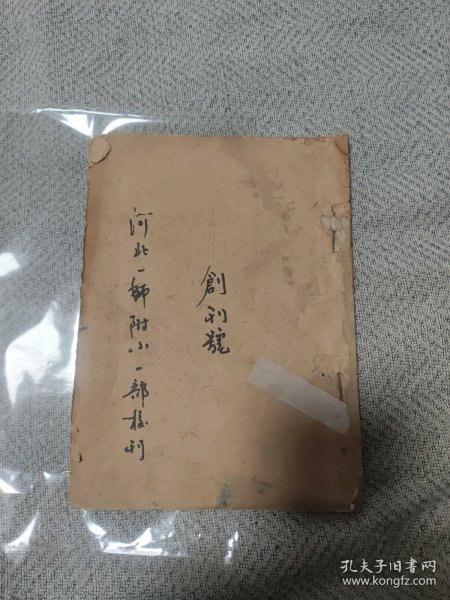 創刊號
河北一師附小一部校刊
孔夫子旧书网
www.kongfz.com